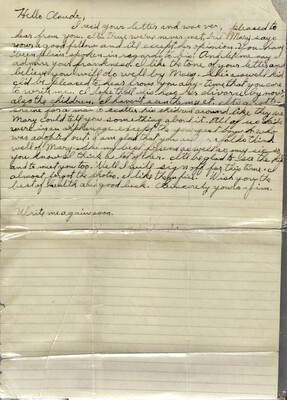 Hello Claude,
I read your letter and was very pleased to
hear from you. It's true, we've never met, but Mary says
your a good fellow and I'll accept her opinion. You have
been plain spoken in regard to Jim. And let me say I
admire your frankness. I like the tone of your letter and
believe you will do well by Mary. She is a swell kid
and I'd be pleased to hear from you any time that you care
to write me. I hope that Mary has her divorce by now
also the children. I haven't seen them yet. It's a rotten
shame for a man to scatter his children around like they
Mary could tell you something about it. All of us
were in an orphanage except the youngest boy
was adopted out. I am glad that you
well of Mary. She my best friend as well as my sister
you know I think a lot of her. I'll be glad to see the kids
and to meet you too. Well I quit sign off for this time. I
almost forgot the photos, I like them fine. Wish you the
best of health and good luck. Sincerely yours Jim.
Write me again soon.